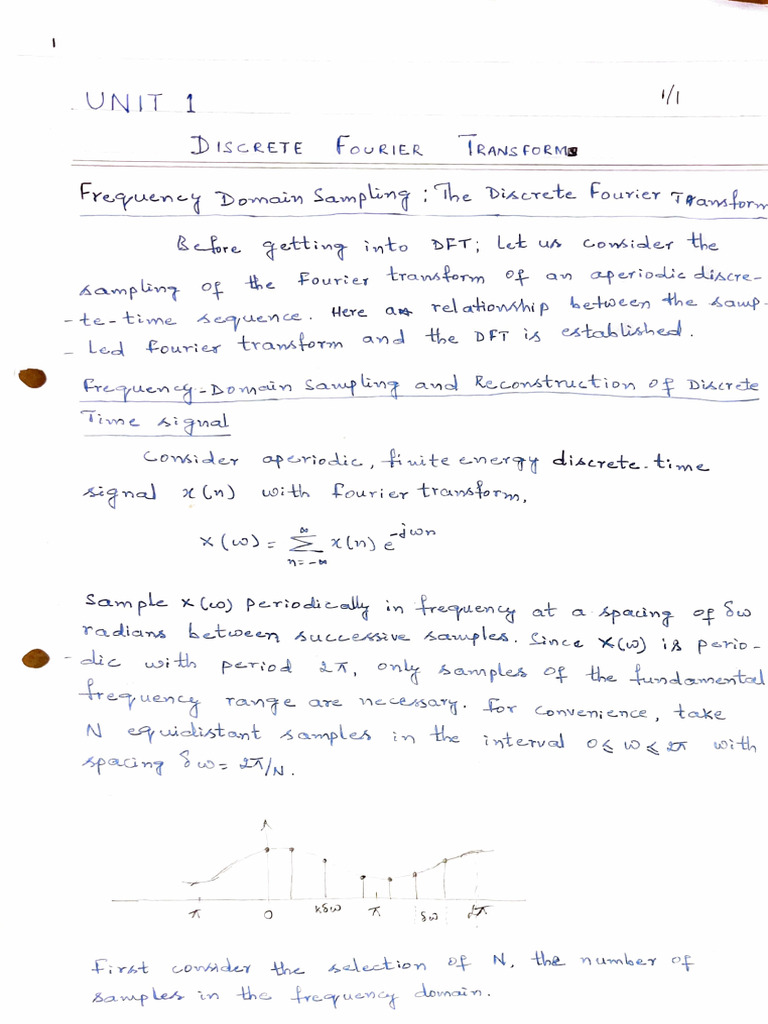 1
UNIT 1 1/1
DISCRETE FOURIER TRANSFORMS
Frequency Domain Sampling: The Discrete Fourier Transform
Before getting into DFT; Let us consider the
sampling of the Fourier transform of an aperiodic discre-
-te-time sequence. Here a relationship between the samp-
-led fourier transform and the DFT is established.
Frequency-Domain Sampling and Reconstruction of Discrete
Time signal
Consider aperiodic, finite energy discrete-time
signal x(n) with fourier transform,
X(ω) = ∑ x(n) e^{-jωn}
n=-∞ ∞
Sample X(ω) periodically in frequency at a spacing of δω
radians between successive samples. Since X(ω) is perio-
-dic with period 2π, only samples of the fundamental
frequency range are necessary. For convenience, take
N equidistant samples in the interval 0≤ω≤2π with
spacing δω = 2π/N.
π 0 kδω π δω 2π
First consider the selection of N, the number of
samples in the frequency domain.